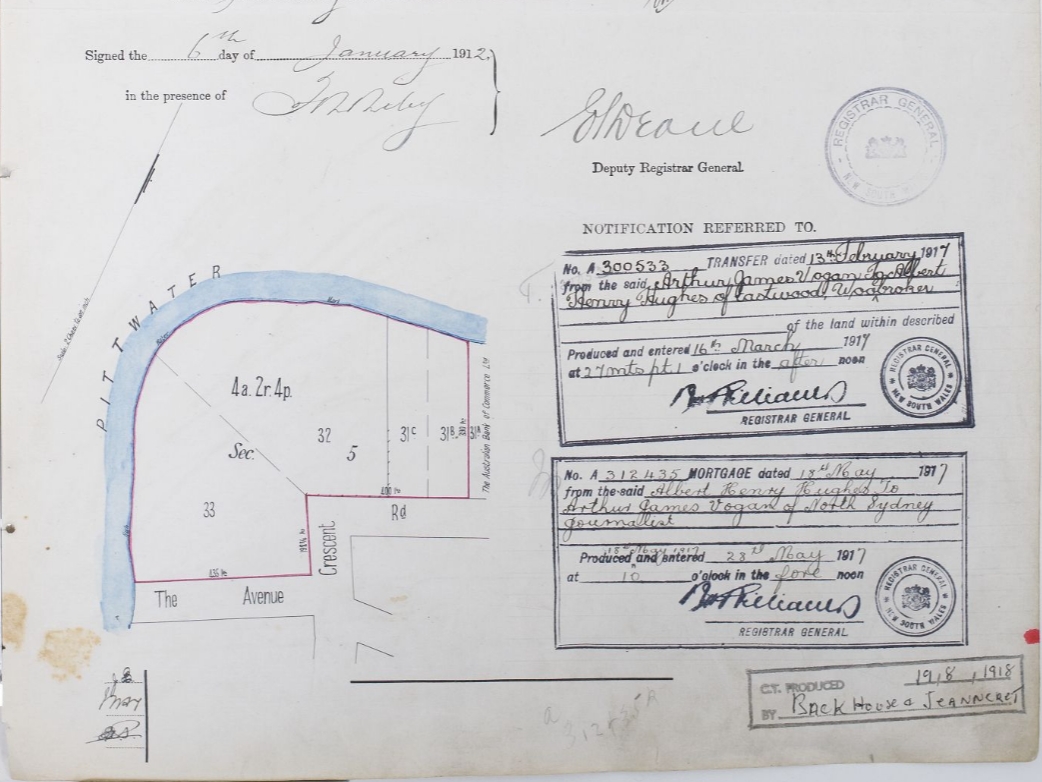 Signed the 6th day of January 1912,
in the presence of
Deputy Registrar General.
REGISTRAR GENERAL
N.W. SOUTH W
NOTIFICATION REFERRED TO.
No. A 300533 TRANSFER dated 13th February 1917
from the said Arthur James Vogan To Albert
Henry Hughes of Eastwood, Woolbroker
of the land within described
Produced and entered 16th March 1917
at 27 mts pt 1 o'clock in the after noon
REGISTRAR GENERAL.
REGISTRAR GENERAL
NEW SOUTH WALES
No. A 312435 MORTGAGE dated 18th May 1917
from the said Albert Henry Hughes To
Arthur James Vogan of North Sydney
Journalist
Produced and entered 23rd May 1917
at 10 o'clock in the fore noon
REGISTRAR GENERAL.
REGISTRAR GENERAL
NEW SOUTH WALES
C.T. PRODUCED 19/8/1918
BY BackHouse & Jeanneret
PITTWATER
4a. 2r. 4p.
Sec. 5
32
31C
31B
31A
33
The Australian Bank of Commerce Ltd
Crescent Rd
The Avenue
312435